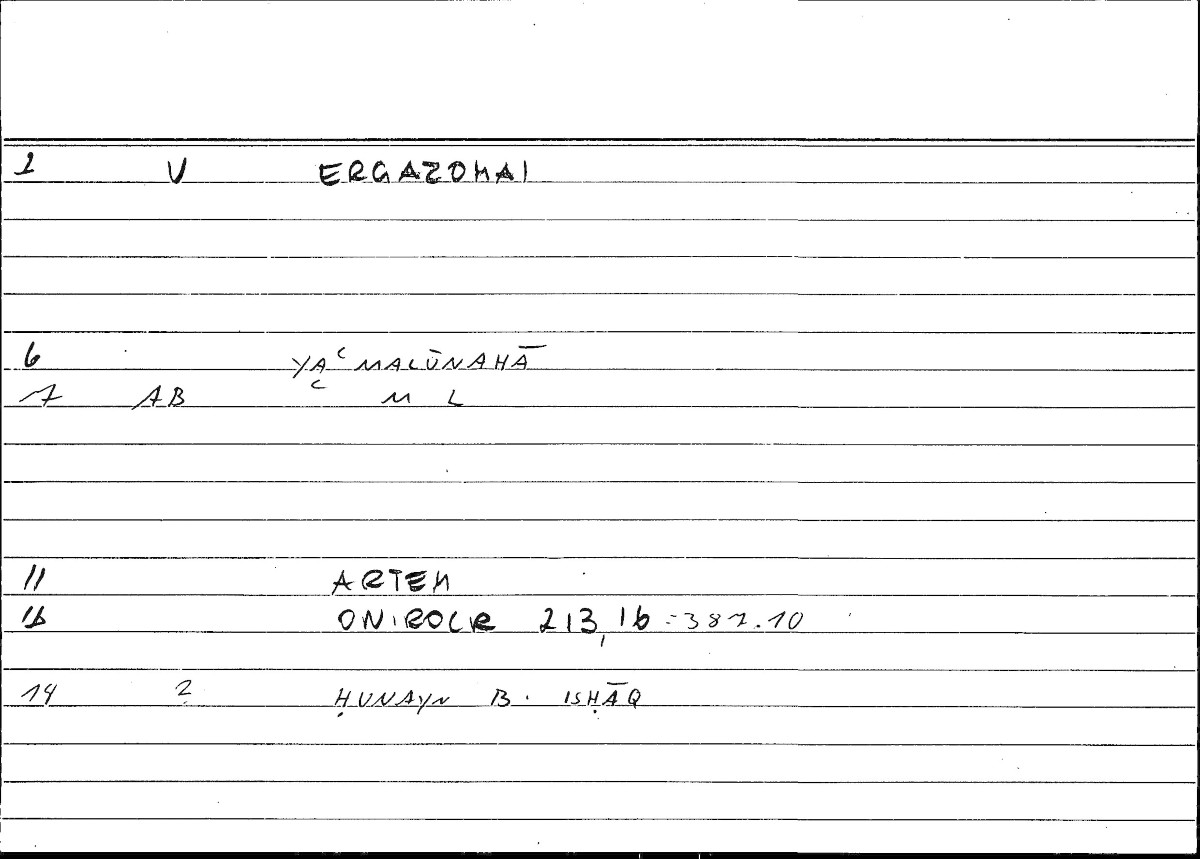 1 V ERGAZOMAI
6 YAʿMALŪNAHĀ
7 AB ʿ M L
11 ARTEM
16 ONIROCR 213,16 = 387.10
14 2 ḤUNAYN B. ISḤĀQ